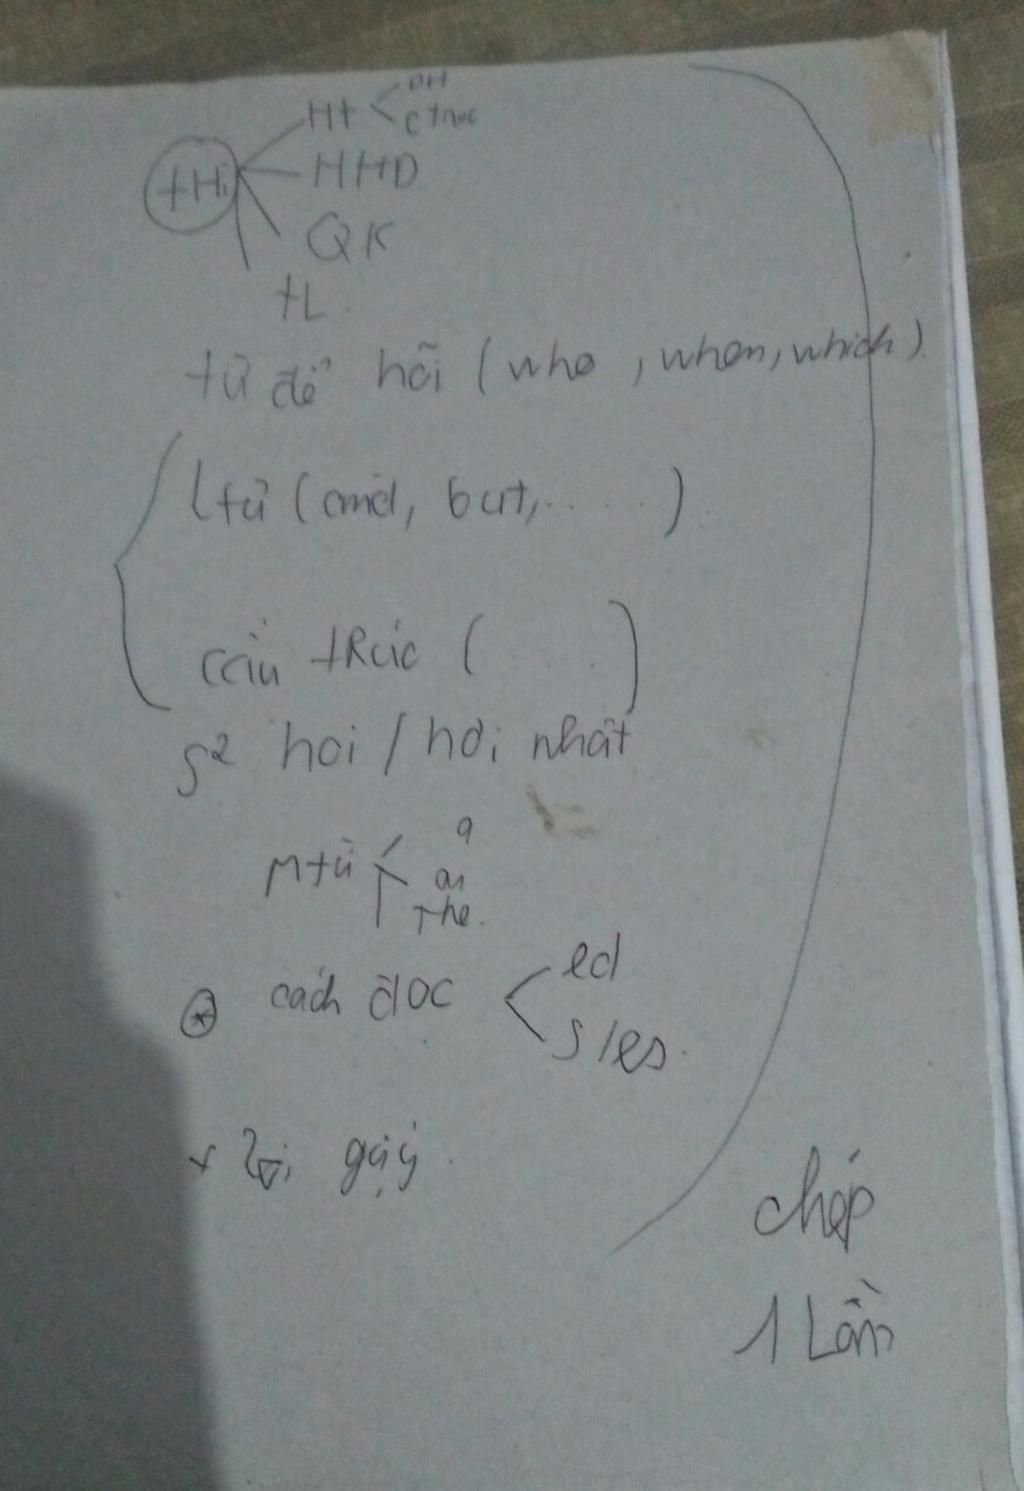 Ht
ĐH
c trúc
tHì
HHD
QK
tL.
từ để hỏi (who, when, which)
Ltừ (and, but, ......)
cấu tRúc ( .... )
s² hơi / hơi nhất
Mtừ
a
an
The.
cách đọc
ed
s/es
chép
1 Lần